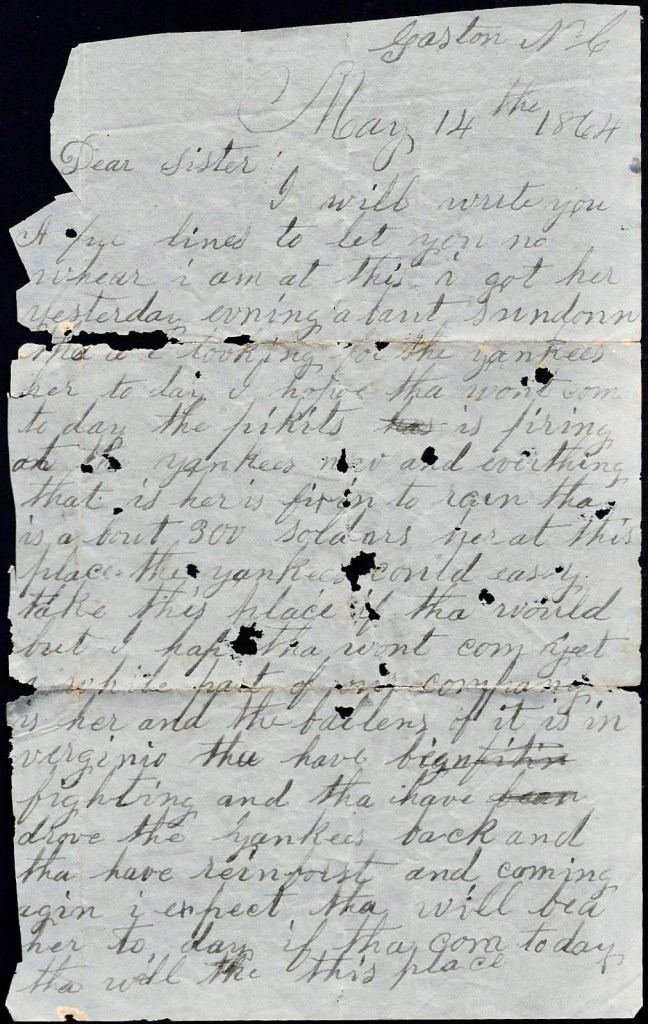 Gaston N C
May 14 the 1864
Dear Sister
I will write you
A fue lines to let you no
whear i am at this i got her
yesterday evning a bout Sundonn
looking for the yankees
her to day I hope tha wont com
to day the pikits is firing
at the yankees now and everthing
that is her is fixin to rain tha
is a bout 300 soldars her at this
place the yankees could easy
take this place if tha would
but I hap tha wont com yet
a while part of our company
is her and the ballens of it is in
verginio tha have bign
fighting and tha have
drove the yankees back and
tha have reinforst and coming
agin i expect tha will bea
her to day if tha com to day
tha will the this place